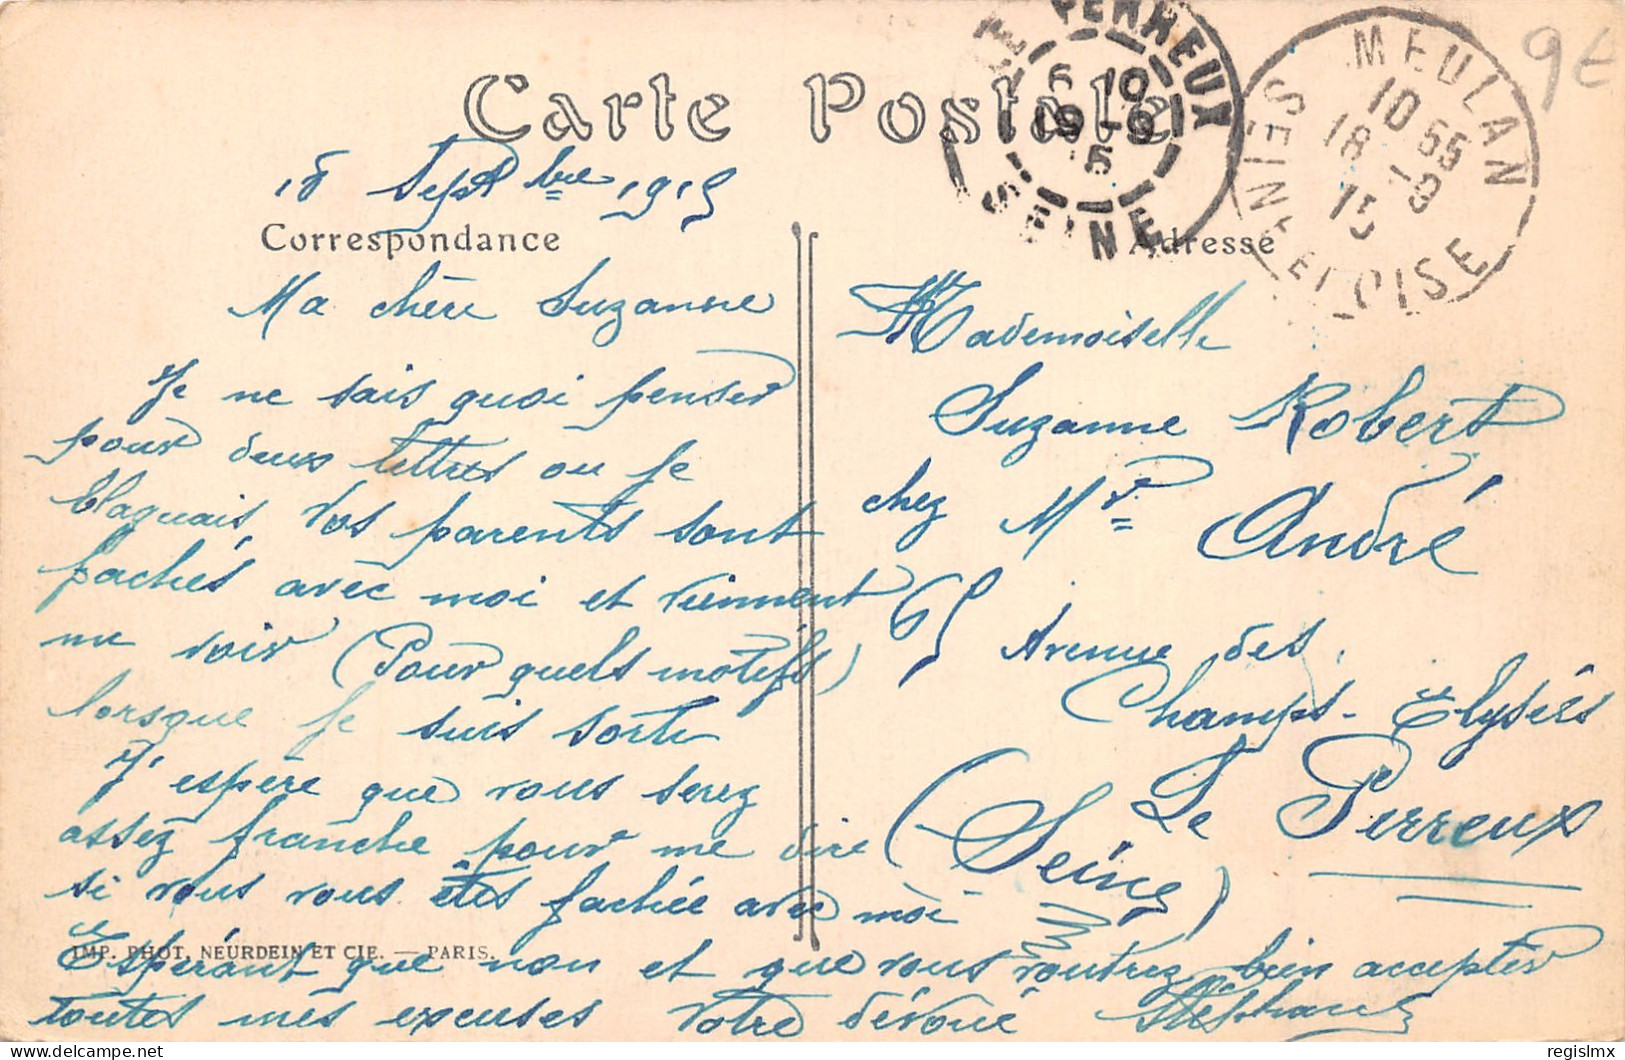 Carte Postale
LE PERREUX
6 10
19-9
15
SEINE
MEULAN
10 55
18-9
15
SEINE ET OISE
9€
18 Septbre 1915
Correspondance
Ma chère Suzanne
Je ne sais quoi penser
pour deux lettres ou je
blaguais, Vos parents sont
fachés avec moi et viennent
me voir (Pour quels motifs)
lorsque je suis sorti
J'espère que vous serez
assez franche pour me dire
si vous vous êtes fachée avec moi
Espérant que non et que vous voudrez bien accepter
toutes mes excuses Votre dévoué Stéphane
Adresse
Mademoiselle
Suzanne Robert
chez Mr André
65 Avenue des
Champs-Elysées
Le Perreux
(Seine)
IMP. PHOT. NEURDEIN ET CIE. — PARIS.
delcampe.net
regislmx